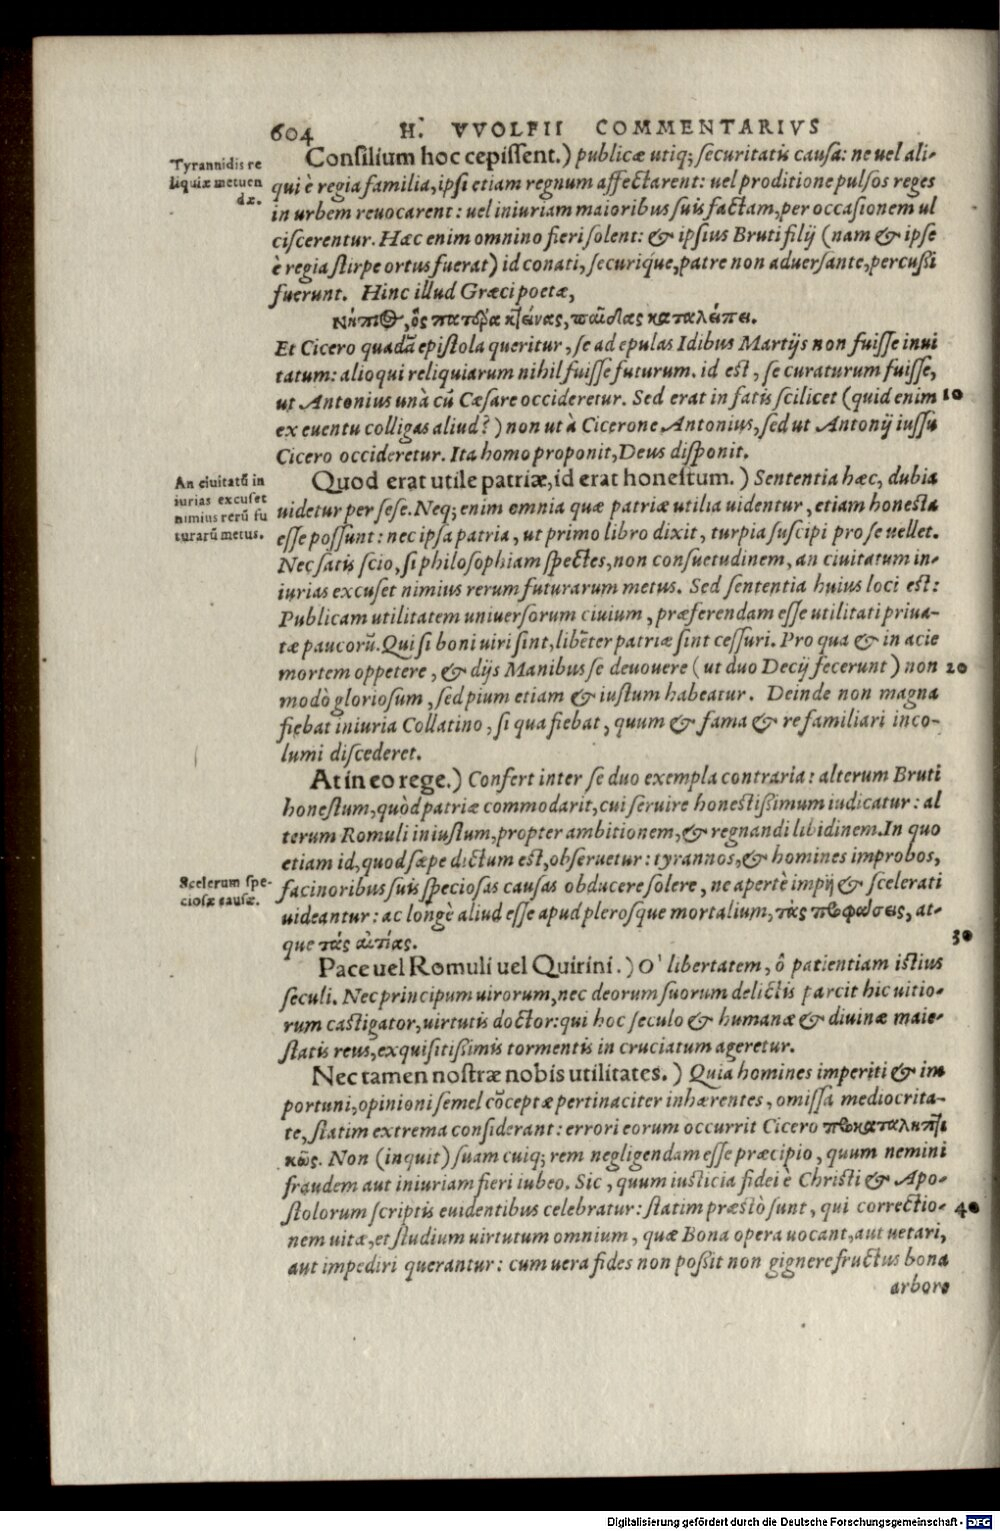 604 H. VVOLFII COMMENTARIVS
Tyrannidis re
liquiæ metuen
dæ.
Consilium hoc cepissent.) publicæ utiq; securitatis causa: ne uel ali-
qui è regia familia, ipsi etiam regnum affectarent: uel proditione pulsos reges
in urbem reuocarent: uel iniuriam maioribus suis factam, per occasionem ul
ciscerentur. Hæc enim omnino fieri solent: & ipsius Bruti filij (nam & ipse
è regia stirpe ortus fuerat) id conati, securique, patre non aduersante, percussi
fuerunt. Hinc illud Græci poetæ,
Νήπιος, ὃς πατέρα κτείνας, παῖδας καταλείπει.
Et Cicero quadã epistola queritur, se ad epulas Idibus Martijs non fuisse inui
tatum: alioqui reliquiarum nihil fuisse futurum. id est, se curaturum fuisse,
ut Antonius unà cũ Cæsare occideretur. Sed erat in fatis scilicet (quid enim 10
ex euentu colligas aliud?) non ut à Cicerone Antonius, sed ut Antonij iussu
Cicero occideretur. Ita homo proponit, Deus disponit.
An ciuitatũ in
iurias excuset
nimius rerũ fu
turarũ metus.
Quod erat utile patriæ, id erat honestum.) Sententia hæc, dubia
uidetur per sese. Neq; enim omnia quæ patriæ utilia uidentur, etiam honesta
esse possunt: nec ipsa patria, ut primo libro dixit, turpia suscipi pro se uellet.
Nec satis scio, si philosophiam spectes, non consuetudinem, an ciuitatum in-
iurias excuset nimius rerum futurarum metus. Sed sententia huius loci est:
Publicam utilitatem uniuersorum ciuium, præferendam esse utilitati priua-
tæ paucorũ. Qui si boni uiri sint, libẽter patriæ sint cessuri. Pro qua & in acie
mortem oppetere, & dijs Manibus se deuouere (ut duo Decij fecerunt) non 20
modò gloriosum, sed pium etiam & iustum habeatur. Deinde non magna
fiebat iniuria Collatino, si qua fiebat, quum & fama & re familiari inco-
lumi discederet.
At in eo rege.) Confert inter se duo exempla contraria: alterum Bruti
honestum, quòd patriæ commodarit, cui seruire honestissimum iudicatur: al
terum Romuli iniustum, propter ambitionem, & regnandi libidinem. In quo
etiam id, quod sæpe dictum est, obseruetur: tyrannos, & homines improbos,
Scelerum spe-
ciosæ causæ.
facinoribus suis speciosas causas obducere solere, ne apertè impij & scelerati
uideantur: ac longè aliud esse apud plerosque mortalium, τὰς προφάσεις, at-
que τὰς αἰτίας. 30
Pace uel Romuli uel Quirini.) O' libertatem, ô patientiam istius
seculi. Nec principum uirorum, nec deorum suorum delictis parcit hic uitio-
rum castigator, uirtutis doctor: qui hoc seculo & humanæ & diuinæ maie-
statis reus, exquisitissimis tormentis in cruciatum ageretur.
Nec tamen nostræ nobis utilitates.) Quia homines imperiti & im
portuni, opinioni semel cõceptæ pertinaciter inhærentes, omissa mediocrita-
te, statim extrema considerant: errori eorum occurrit Cicero προκαταληπτι
κῶς. Non (inquit) suam cuiq; rem negligendam esse præcipio, quum nemini
fraudem aut iniuriam fieri iubeo. Sic, quum iusticia fidei è Christi & Apo-
stolorum scriptis euidentibus celebratur: statim præstò sunt, qui correctio- 40
nem uitæ, et studium uirtutum omnium, quæ Bona opera uocant, aut uetari,
aut impediri querantur: cum uera fides non possit non gignere fructus bona
arbore
Digitalisierung gefördert durch die Deutsche Forschungsgemeinschaft - DFG